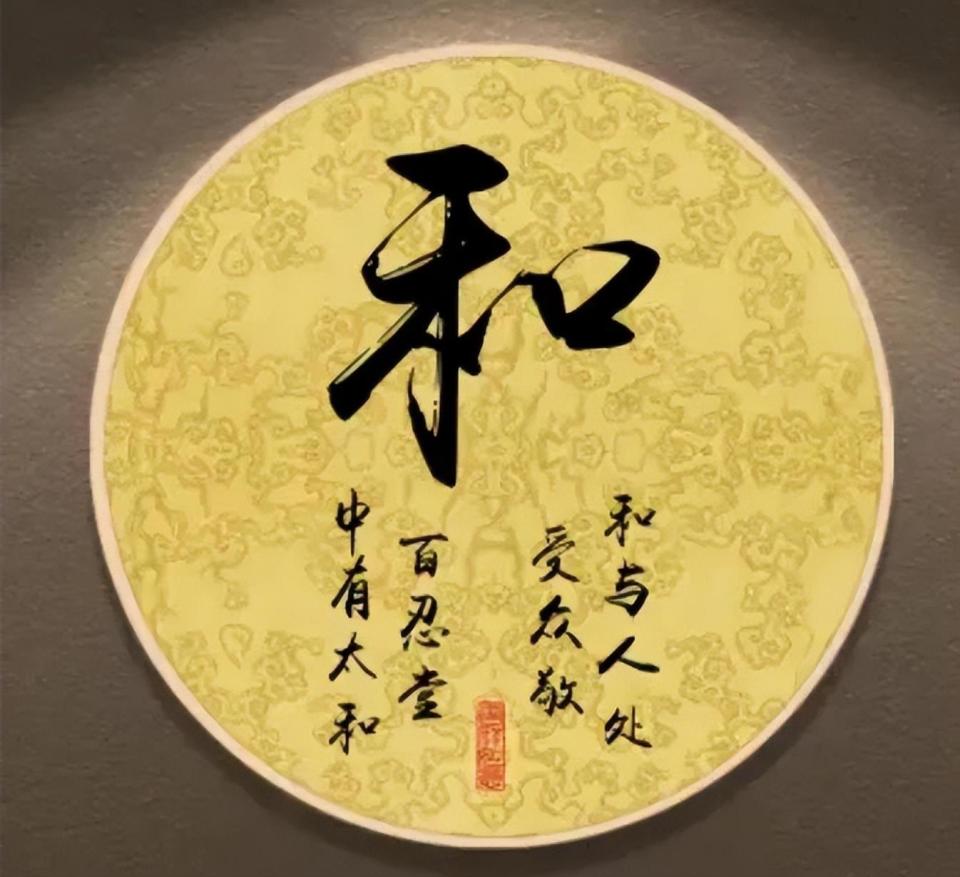 和
和与人处
受众敬
百忍堂
中有太和